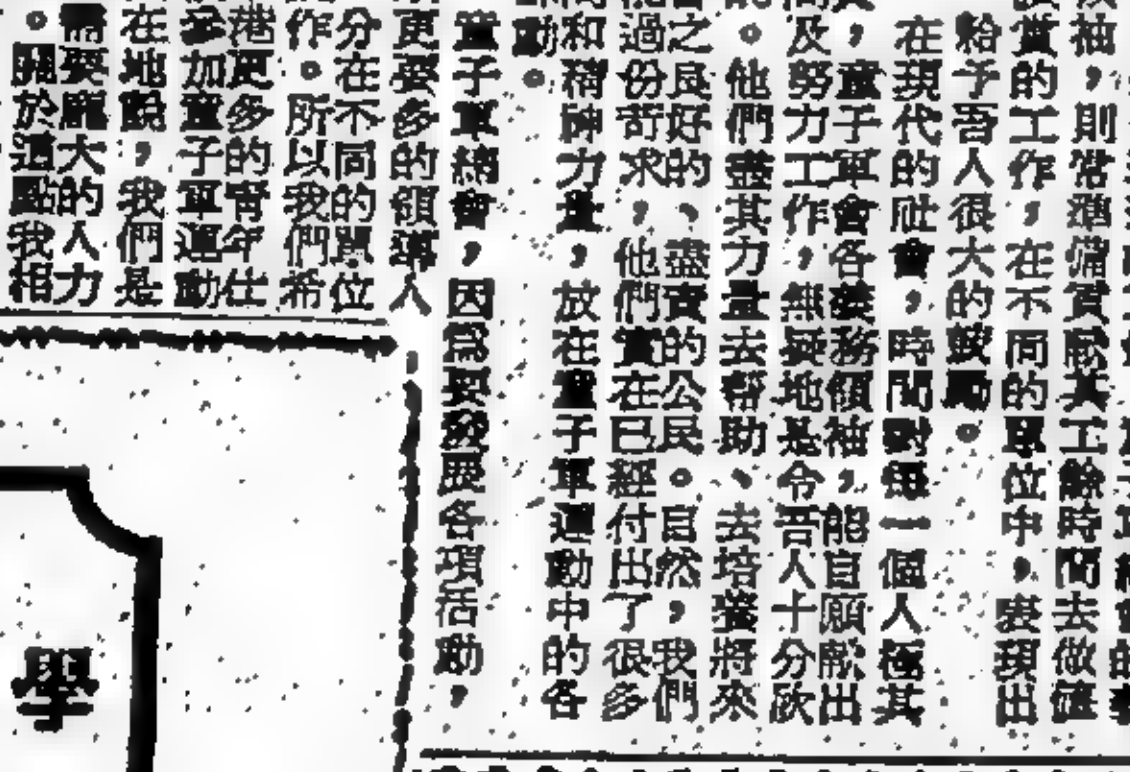 領袖，則常準備貢獻其工餘時間去做確
的工作，在不同的單位中，表現出
給予吾人很大的鼓勵。
在現代的社會，時間對每一個人極其
，童子軍會各義務領袖，能自願獻出
及努力工作，無疑地是令吾人十分欽
。他們盡其力量去幫助、去培養將來
之良好的、盡責的公民。自然，我們
過份苛求，他們實在已經付出了很多
和精神力量，放在童子軍運動中的各
動。
童子軍總會，因為要發展各項活動，
更要多的領導人
分在不同的單位
作。所以我們希
港更多的青年仕
參加童子軍運動
在地說，我們是
需要龐大的人力
。關於這點我相
學